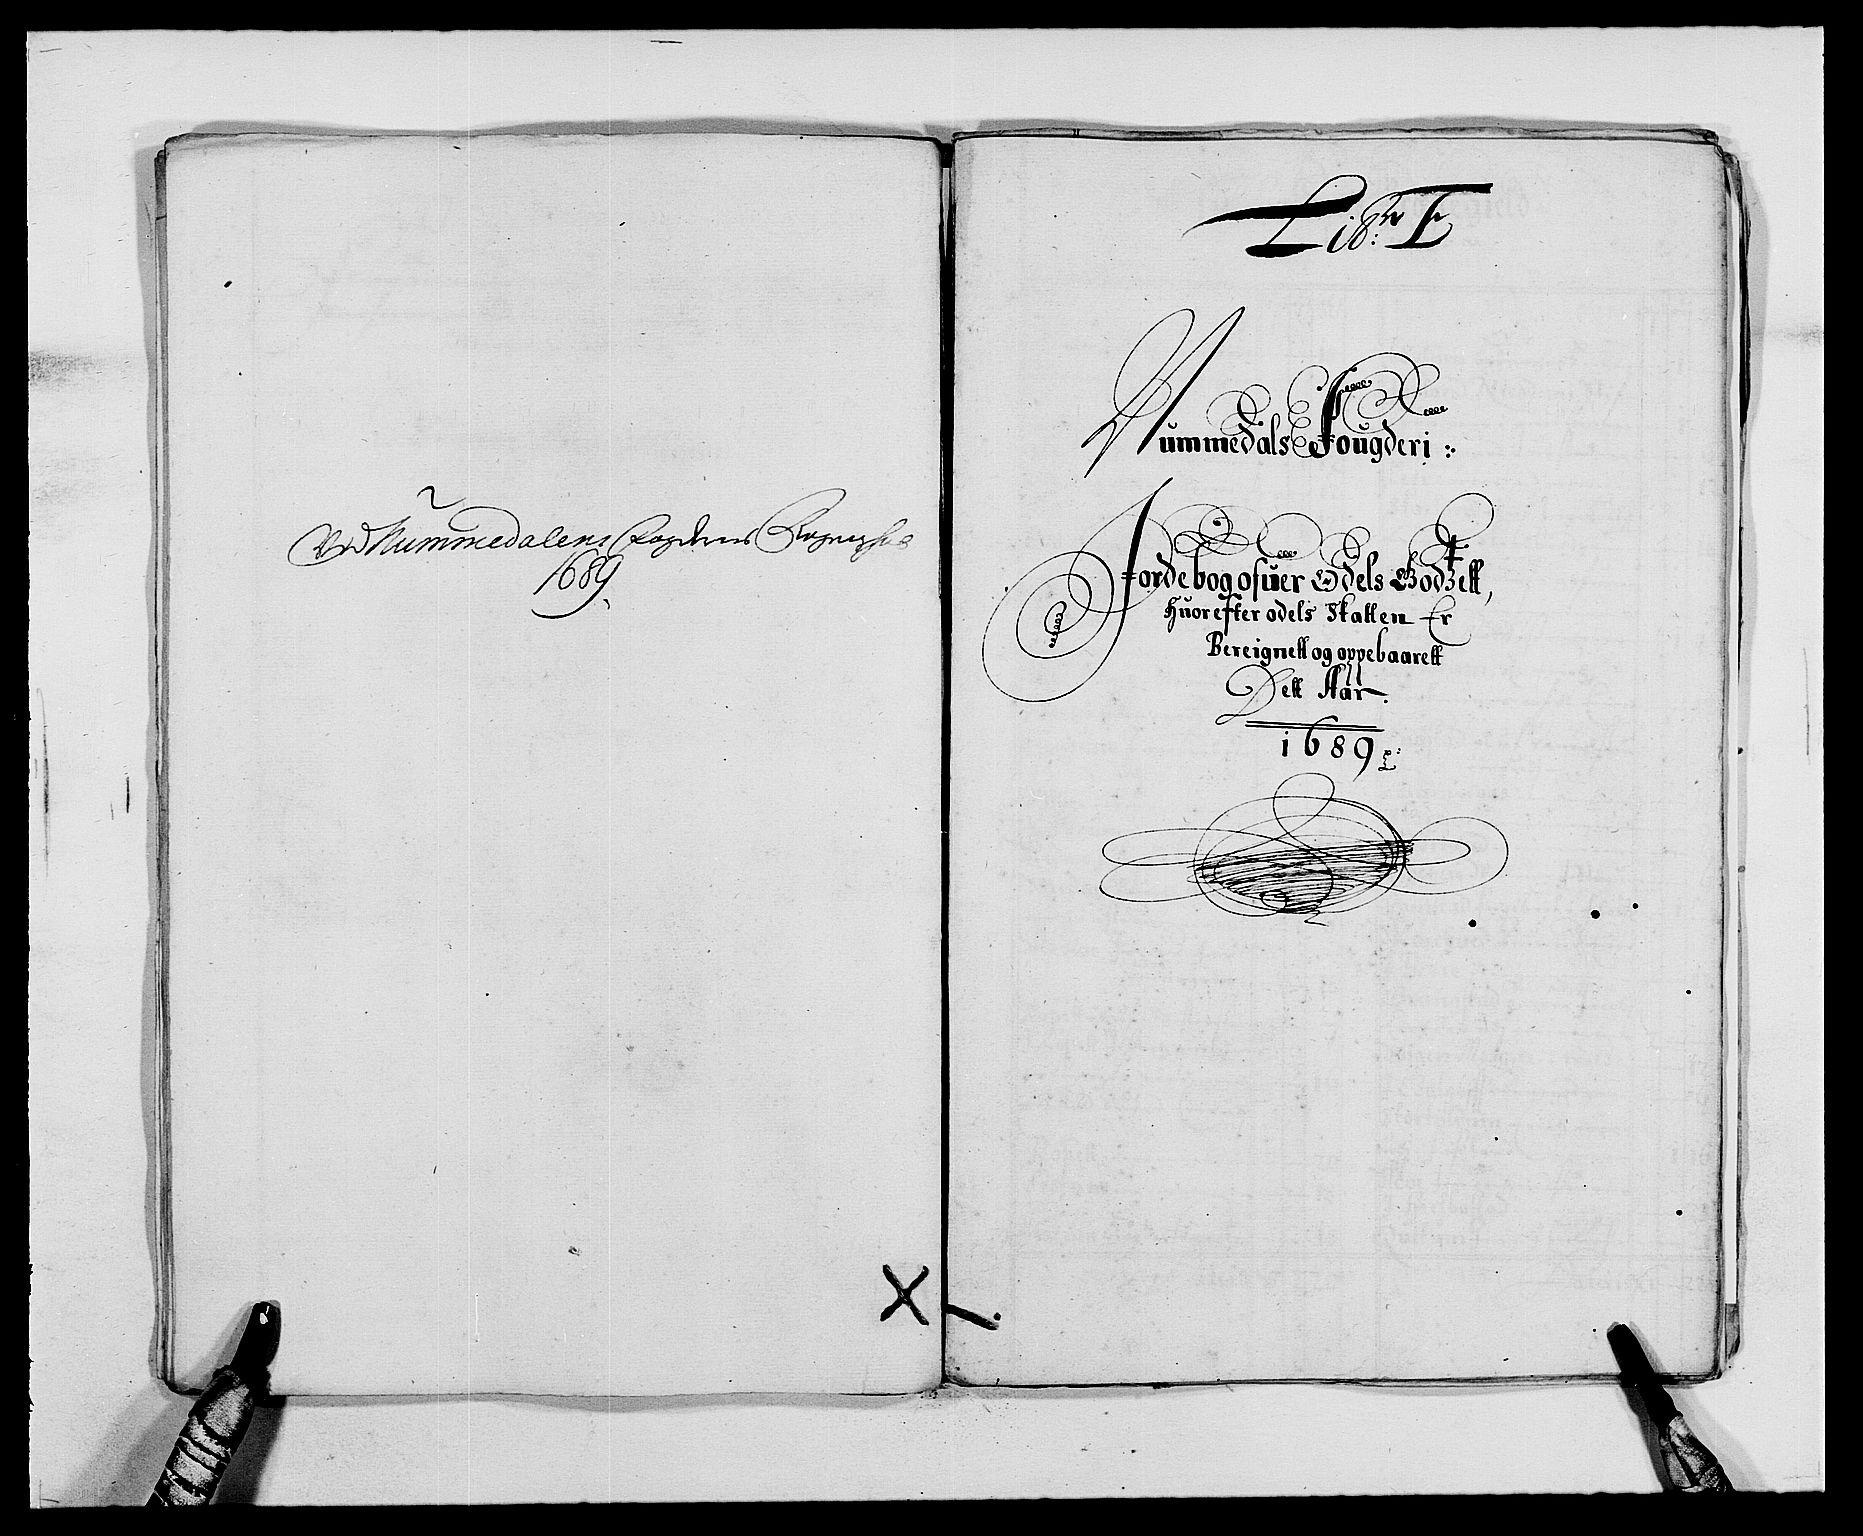 Ved Nummedalens Fogderis Regnskab
1689.
Lit: F
Nummedals Fougderi:
Jordebog ofuer Odels Godzett,
Huorefter odels Skatten Er
Bereignett og oppebaarett
Dett Aar.
1689
X